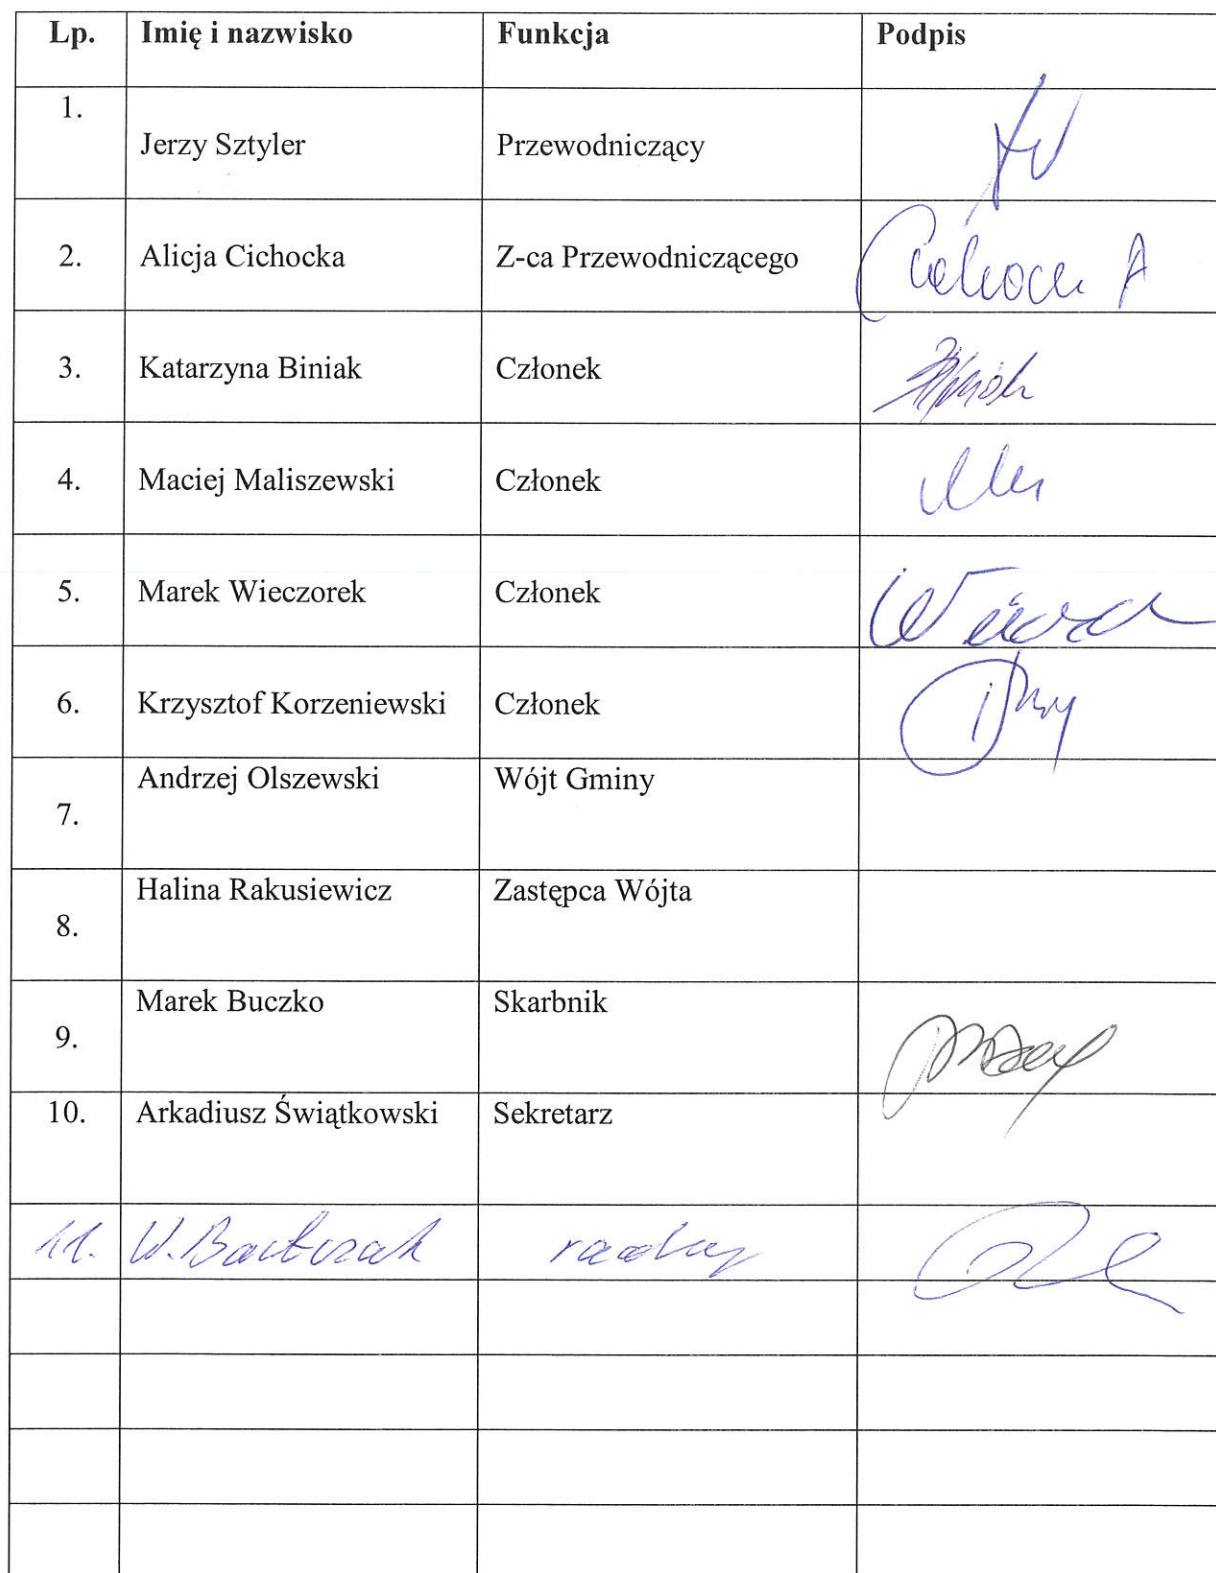 Lp. Imię i nazwisko Funkcja Podpis
1. Jerzy Sztyler Przewodniczący
2. Alicja Cichocka Z-ca Przewodniczącego
3. Katarzyna Biniak Członek
4. Maciej Maliszewski Członek
5. Marek Wieczorek Członek
6. Krzysztof Korzeniewski Członek
7. Andrzej Olszewski Wójt Gminy
8. Halina Rakusiewicz Zastępca Wójta
9. Marek Buczko Skarbnik
10. Arkadiusz Świątkowski Sekretarz
11. W. Bartczak radny